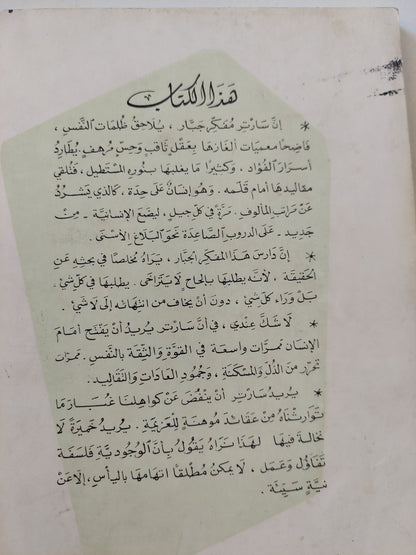 هَذَا الكتاب
* إنّ سَارْتر مُفكّر جَبّار ، يُلاحِقُ ظُلمَات النَّفْس ،
فَاضِحًا معمّيات ألغازهَا بِعَقْلٍ ثَاقب وَحِسٍّ مُرهَف. يُطَارِدُ
أسْرَارَ الفُؤَاد ، وَكثِيرًا مَا يغلبهَا بنُوره المسْتَطيل ، فَتُلقي
مقاليدهَا أمَام قلَمه . وَهوَ إنسَانٌ عَلى حِدة ، كالّذي يَتمَرّدُ
عَنْ مَراتِبِ المألوف . مَرَّةً في كلّ جيل ، ليَضَعَ الإنسَانيَّة - مِنْ
جَديد - عَلى الدرُوبِ الصَّاعِدة نَحوَ البَلاغِ الأسْنى .
* إنّ دَارسَ هَذَا المفكّر الجبّار ، يَرَاهُ مُخلصًا في بحثِه عَنِ
الحقيقَة ، لأنّه يَطلبهَا بإلحَاحٍ لَا يَتَراخَى . يطلبهَا في كلّ شَيْء ،
بَلْ وَرَاء كلّ شَيْء ، دونَ أنْ يخاف من انتهائه إلى لَا شَيْء .
* لَا شَكَّ عِندِي ، في أنّ سَارْتر يُريدُ أنْ يَفْتَحَ أمَامَ
الإنسَان ممرّات واسعَة في القوّة وَالثّقة بالنَّفْس . ممَرّات
تحرّر من الذّلّ وَالمسْكَنَة ، وَجُمودِ العَادَاتِ وَالتّقَاليد .
* يُريدُ سَارْتر أنْ يَنْفُضَ عَنْ كواهِلنَا غُبَارَ مَا
تَوَارثنَاهُ مِنْ عَقَائد مُوهنَة لِلْعَزيمَةِ . يُريدُ خَميرَةً لَا
نخَالة فيهَا لهَذا نَراهُ يَقُولُ بأنّ الوُجُوديّة فلسَفَة
تَفَاؤل وَعَمَل ، لَا يمكنُ مُطلقًا اتهَامهَا باليأسِ ، إلّا عَنْ
نيّةٍ سَيِّئَة .